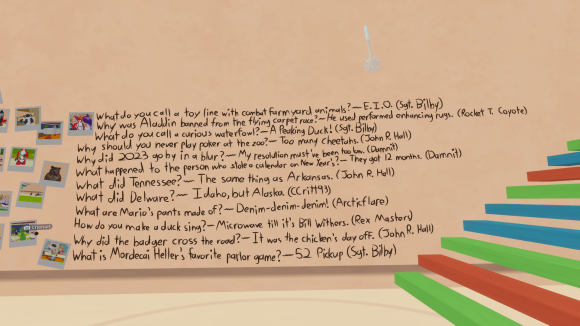 What do you call a toy line with combat farmyard animals?— E.I.O. (Sgt. Bilby)
Why was Aladdin banned from the flying carpet race?— He used performed enhancing rugs. (Rocket T. Coyote)
What do you call a curious waterfowl?— A Peaking Duck! (Sgt. Bilby)
Why should you never play poker at the zoo?— Too many cheetahs. (John R. Hall)
Why did 2023 go by in a blur?— My resolution must've been too low. (Damnit)
What happened to the person who stole a calendar on New Year's?— They got 12 months. (Damnit)
What did Tennessee?— The same thing as Arkansas. (John R. Hall)
What did Delware?— Idaho, but Alaska. (CCrit493)
What are Mario's pants made of?— Denim-denim-denim! (Arcticflare)
How do you make a duck sing?— Microwave till it's Bill Withers. (Rex Masters)
Why did the badger cross the road?— It was the chicken's day off. (John R. Hall)
What is Mordecai Heller's favorite parlor game?— 52 Pickup (Sgt. Bilby)